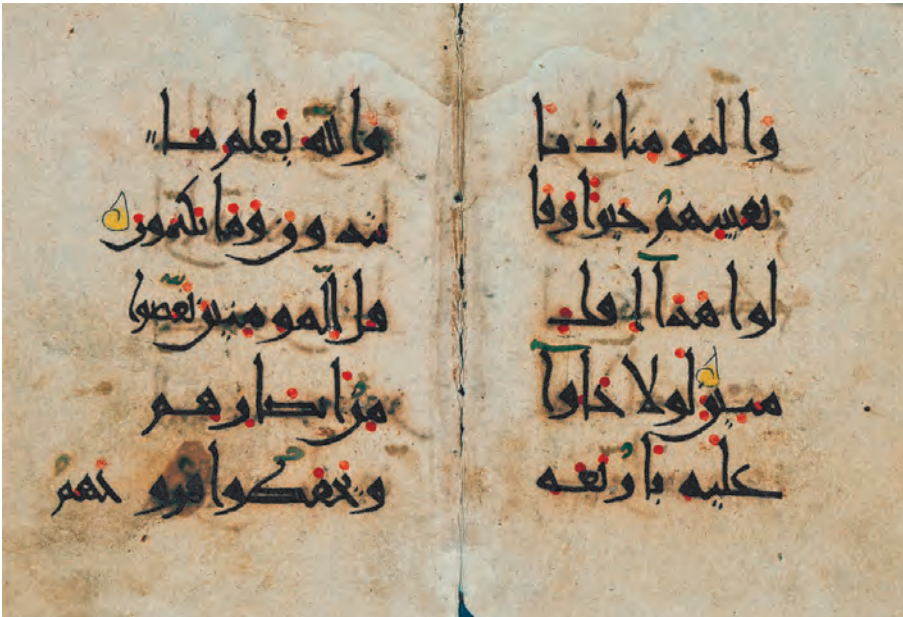 والمومنات با
نفسهم خيرا وقا
لوا هذا افك
مبين لولا جاو
عليه باربعه
والله يعلم ما
تبدون وما تكتمون
قل للمومنين يغضوا
من ابصارهم
ويحفظوا فروجهم